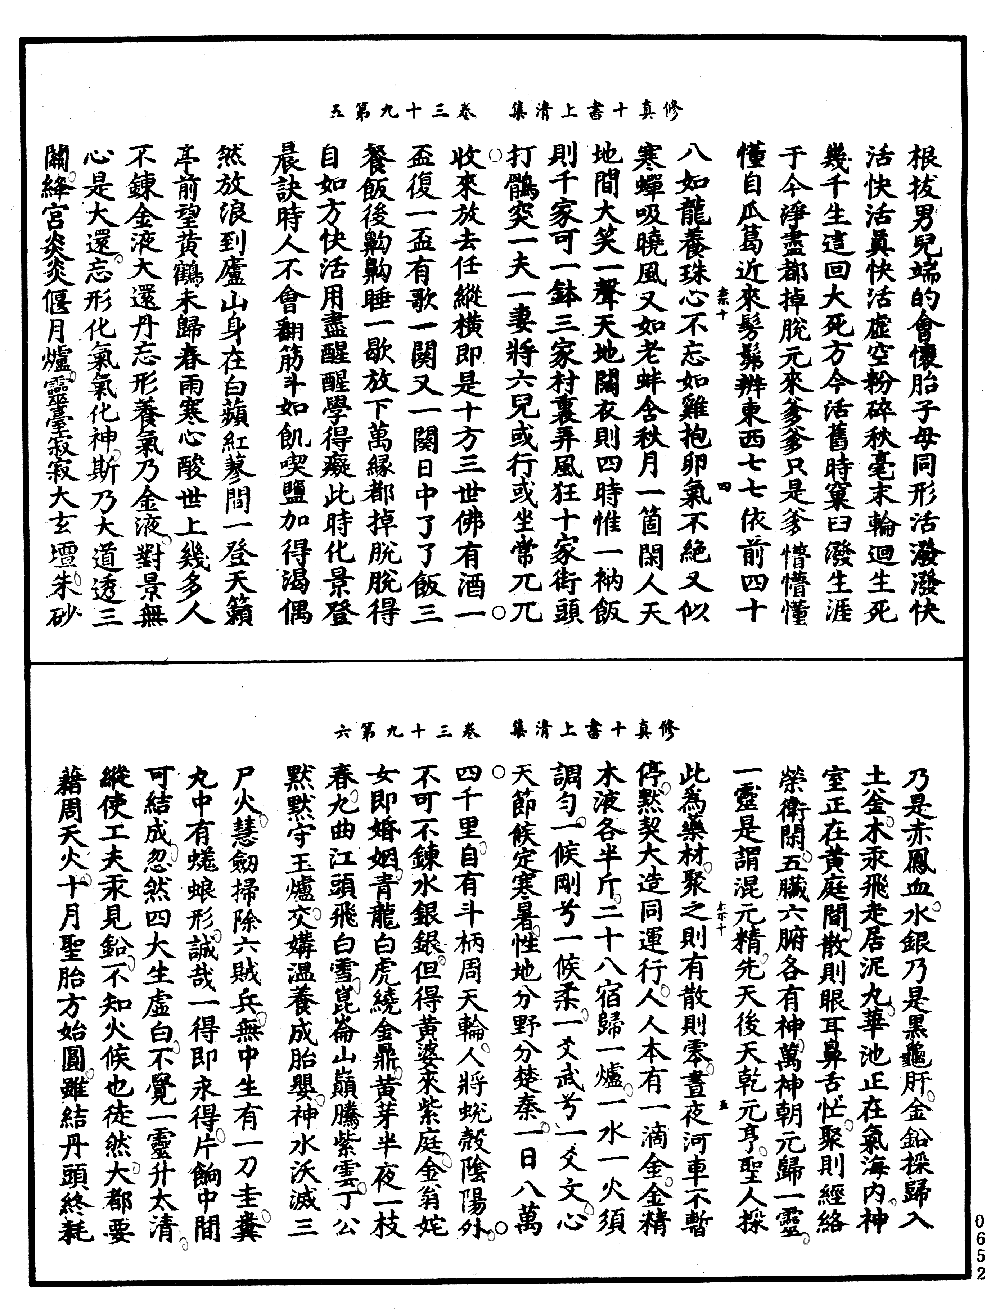 修真十書上清集　卷三十九第五
根拔男兒端的會懷胎子母同形活潑潑快
活快活真快活虛空粉碎秋毫末輪迴生死
幾千生這回大死方今活舊時窠臼潑生涯
于今淨盡都掉脫元來爹爹只是爹懵懵懂
懂自瓜葛近來髣髴辨東西七七依前四十
八如龍養珠心不忘如雞抱卵氣不絕又似
寒蟬吸曉風又如老蚌含秋月一箇閑人天
地間大笑一聲天地闊衣則四時惟一衲飯
則千家可一鉢三家村裏弄風狂十家街頭
打鶻突一夫一妻將六兒或行或坐常兀兀
收來放去任縱橫即是十方三世佛有酒一
盃復一盃有歌一闋又一闋日中了了飯三
餐飯後齁齁睡一歇放下萬緣都掉脫脫得
自如方快活用盡醒醒學得癡此時化景登
晨訣時人不會翻筋斗如飢喫鹽加得渴偶
然放浪到廬山身在白蘋紅蓼間一登天籟
亭前望黃鶴未歸春雨寒心酸世上幾多人
不鍊金液大還丹忘形養氣乃金液對景無
心是大還忘形化氣氣化神斯乃大道透三
關絳宮炎炎偃月爐靈臺寂寂大玄壇朱砂
修真十書上清集　卷三十九第六
乃是赤鳳血水銀乃是黑龜肝金鉛採歸入
土金木汞飛走居泥丸華池正在氣海內神
室正在黃庭間散則眼耳鼻舌忙聚則經絡
榮衛閑五臟六腑各有神萬神朝元歸一靈
一靈是謂混元精先天後天乾元亨聖人採
此為藥材聚之則有散則零晝夜河車不暫
停默契大造同運行人人本有一滴金金精
木液各半斤二十八宿歸一爐一水一火須
調勻一候剛兮一候柔一爻武兮一爻文心
天節候定寒暑性地分野分楚秦一日八萬
四千里自有斗柄周天輪人將蛻殼陰陽外
不可不鍊水銀銀但得黃婆來紫庭金翁姹
女即婚姻青龍白虎繞金鼎黃芽半夜一枝
春九曲江頭飛白雪崑崙山巔騰紫雲丁公
默默守玉爐交媾溫養成胎嬰神水沃滅三
尸火慧劒掃除六賊兵無中生有一刀圭糞
丸中有蜣蜋形誠哉一得即永得片餉中間
可結成忽然四大生虛白不覺一靈升太清
縱使工夫汞見鉛不知火候也徒然大都要
藉周天火十月聖胎方始圓雖結丹頭終耗
0652